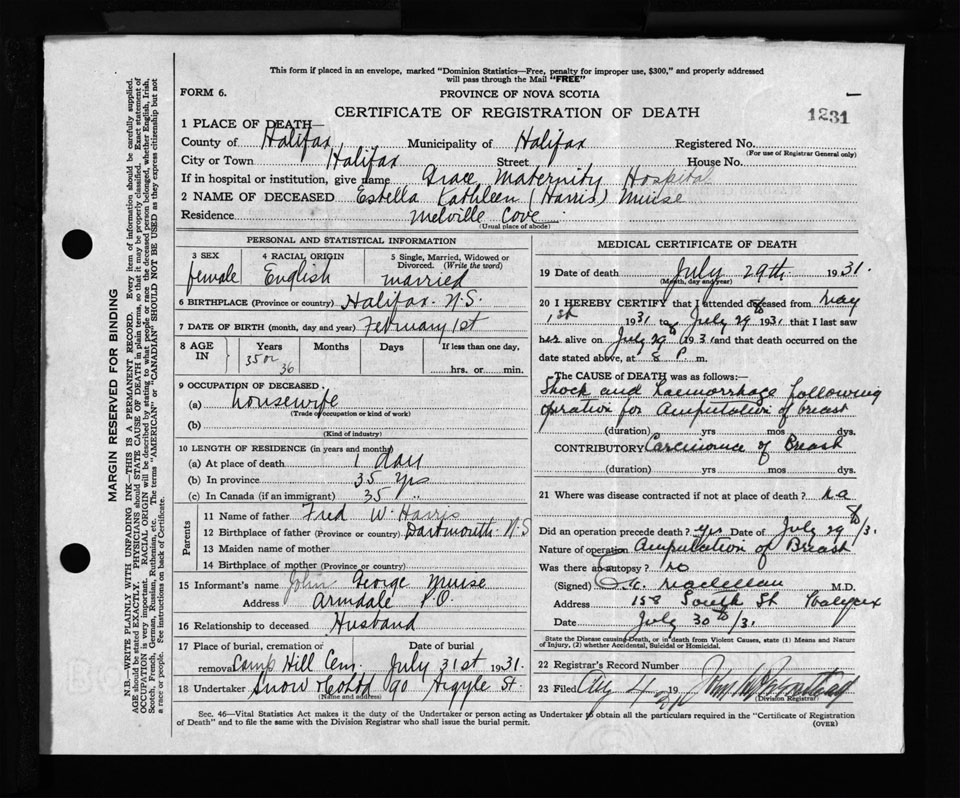 This form if placed in an envelope, marked "Dominion Statistics—Free, penalty for improper use, $300," and properly addressed
will pass through the Mail "FREE"
FORM 6.
PROVINCE OF NOVA SCOTIA
CERTIFICATE OF REGISTRATION OF DEATH
1231
1 PLACE OF DEATH—
County of Halifax Municipality of Halifax Registered No.
(For use of Registrar General only)
City or Town Halifax Street House No.
If in hospital or institution, give name Grace Maternity Hospital
2 NAME OF DECEASED Estella Kathleen (Harris) Muise
Residence Melville Cove
(Usual place of abode)
MARGIN RESERVED FOR BINDING
N.B.—WRITE PLAINLY WITH UNFADING INK—THIS IS A PERMANENT RECORD. Every item of information should be carefully supplied.
AGE should be stated EXACTLY. PHYSICIANS should STATE CAUSE OF DEATH in plain terms, so that it may be properly classified. Exact statement of
OCCUPATION is very important. RACIAL ORIGIN will be described by stating to what people or race the deceased person belonged, whether English, Irish,
Scotch, French, German, Russian, Ruthenian, etc. The terms "AMERICAN" or "CANADIAN" SHOULD NOT BE USED as they express citizenship but not
a race or people. See instructions on back of Certificate.
PERSONAL AND STATISTICAL INFORMATION
3 SEX
female
4 RACIAL ORIGIN
English
5 Single, Married, Widowed or
Divorced. (Write the word)
married
6 BIRTHPLACE (Province or country) Halifax N.S.
7 DATE OF BIRTH (month, day and year) February 1st
8 AGE IN
Years Months Days If less than one day,
35 or 36
hrs. or min.
9 OCCUPATION OF DECEASED
(a) housewife
(Trade of occupation or kind of work)
(b)
(Kind of industry)
10 LENGTH OF RESIDENCE (in years and months)
(a) At place of death 1 day
(b) In province 35 yrs
(c) In Canada (if an immigrant) 35 "
Parents
11 Name of father Fred W. Harris
12 Birthplace of father (Province or country) Dartmouth N.S
13 Maiden name of mother
14 Birthplace of mother (Province or country)
15 Informant's name John George Muise
Address Armdale P.O.
16 Relationship to deceased Husband
17 Place of burial, cremation or Date of burial
removal Camp Hill Cem. July 31st 1931.
18 Undertaker Snow & Co Ltd 90 Argyle St.
(Name and address)
MEDICAL CERTIFICATE OF DEATH
19 Date of death July 29th 1931.
(Month, day and year)
20 I HEREBY CERTIFY that I attended deceased from May
1st 1931 to July 29th 1931 that I last saw
her alive on July 29th 1931 and that death occurred on the
date stated above, at 8 P. m.
The CAUSE OF DEATH was as follows:—
Shock and Haemorrhage following
operation for Amputation of breast
(duration) yrs mos dys.
CONTRIBUTORY Carcinoma of Breast
(duration) yrs mos dys.
21 Where was disease contracted if not at place of death?
Did an operation precede death? Yes Date of July 29th/31
Nature of operation Amputation of Breast
Was there an autopsy? No
(Signed) Maclellan M.D.
Address 158 South St Halifax
Date July 30th/31.
State the Disease causing Death, or in death from Violent Causes, state (1) Means and Nature
of Injury, (2) whether Accidental, Suicidal or Homicidal.
22 Registrar's Record Number
23 Filed Aug 4 19
(Division Registrar)
Sec. 46—Vital Statistics Act makes it the duty of the Undertaker or person acting as Undertaker to obtain all the particulars required in the "Certificate of Registration
of Death" and to file the same with the Division Registrar who shall issue the burial permit.
(OVER)